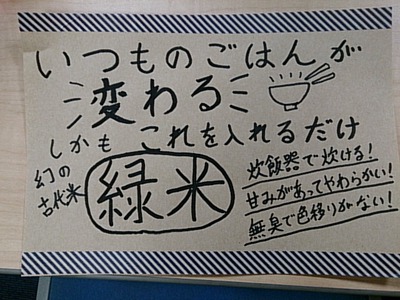 いつものごはんが
変わる
しかも これを入れるだけ
幻の
古代米
緑米
炊飯器で炊ける!
甘みがあってやわらかい!
無臭で色移りがない!